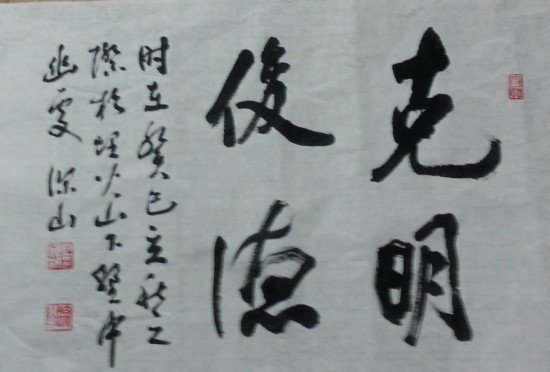 克明
俊德
时在癸巳立秋之
际于埋火山下盘中
幽雯深山